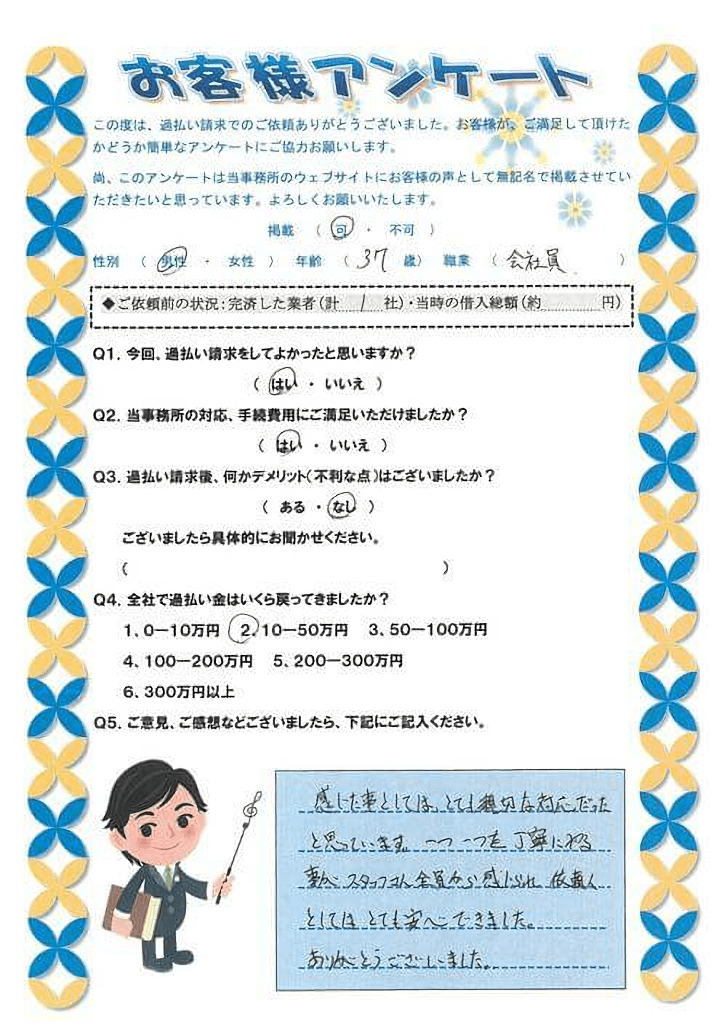 お客様アンケート
この度は、過払い請求でのご依頼ありがとうございました。お客様が、ご満足して頂けた
かどうか簡単なアンケートにご協力お願いします。
尚、このアンケートは当事務所のウェブサイトにお客様の声として無記名で掲載させてい
ただきたいと思っています。よろしくお願いいたします。
掲載 （ 可 ・ 不可 ）
性別 （ 男性 ・ 女性 ） 年齢 （ 37 歳） 職業 （ 会社員 ）
◆ご依頼前の状況：完済した業者（計 1 社）・当時の借入総額（約 円）
Q1. 今回、過払い請求をしてよかったと思いますか？
（ はい ・ いいえ ）
Q2. 当事務所の対応、手続費用にご満足いただけましたか？
（ はい ・ いいえ ）
Q3. 過払い請求後、何かデメリット（不利な点）はございましたか？
（ ある ・ なし ）
ございましたら具体的にお聞かせください。
（ ）
Q4. 全社で過払い金はいくら戻ってきましたか？
1、0－10万円 2、10－50万円 3、50－100万円
4、100－200万円 5、200－300万円
6、300万円以上
Q5. ご意見、ご感想などございましたら、下記にご記入ください。
感じた事としては、とても親切な対応だった
と思っています。一つ一つを丁寧にやる
スタッフさん全員から感じられ 依頼人
としては とても安心できました。
ありがとうございました。